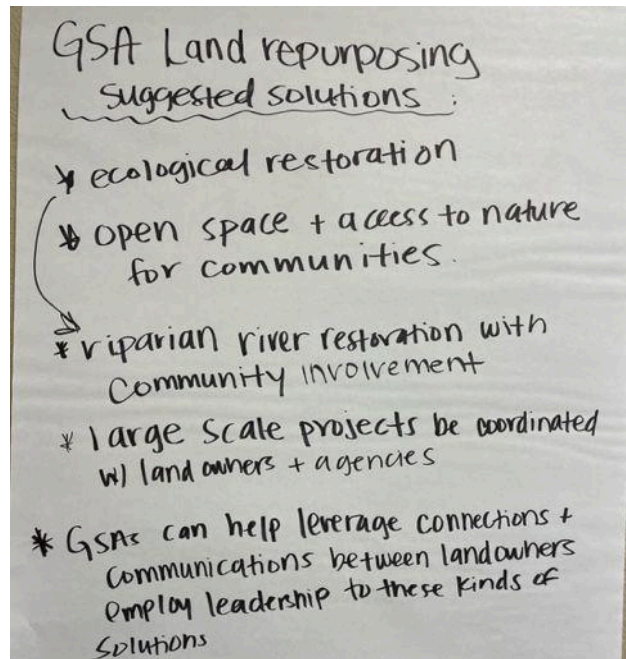 GSA Land repurposing
suggested solutions :
* ecological restoration
* open space + access to nature
for communities.
* riparian river restoration with
Community involvement
* large scale projects be coordinated
w/ land owners + agencies
* GSAs can help leverage connections +
communications between landowners
employ leadership to these kinds of
solutions